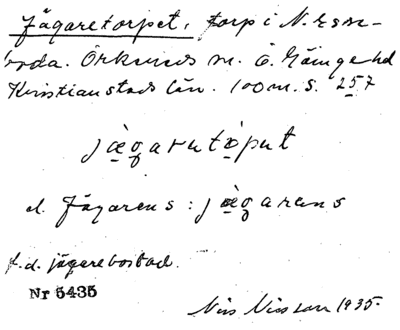 Jägaretorpet, torp i N. Esm-
boda. Örkeneds sn. Ö. Göinge hd
Kristianstads län. 100 m. S. 257
jægarutòput
el. Jägarens: jægarens
f.d. jägarebostad.
Nr 5435
Nils Nilsson 1935.